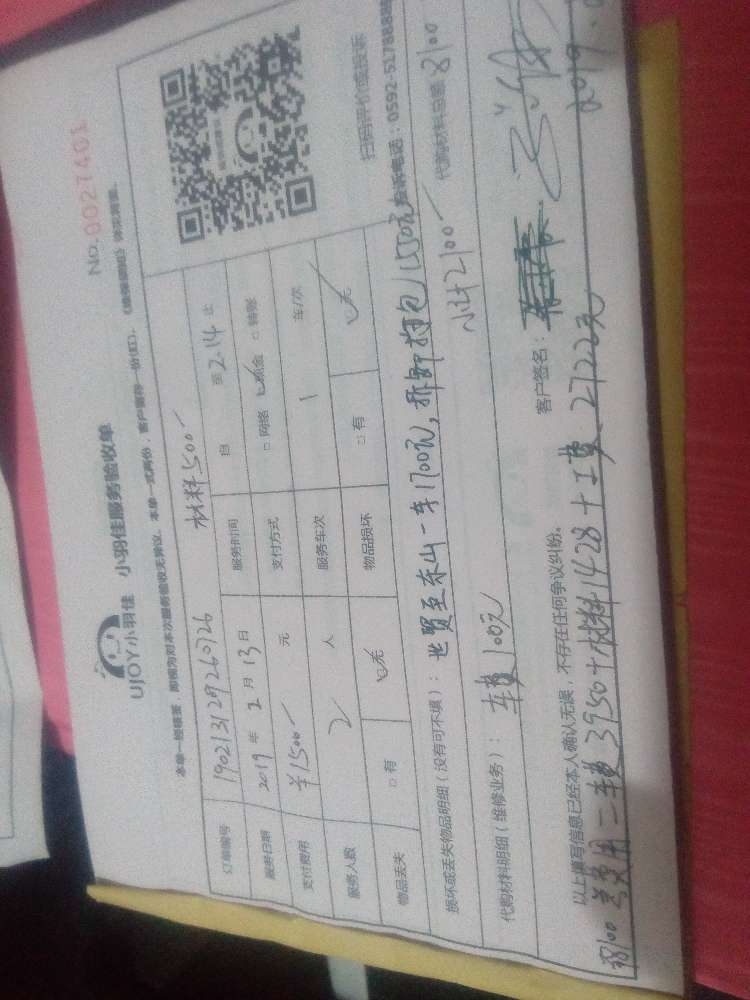 No. 0027401
UJOY小羽佳 小羽佳服务验收单
本单一经核签，即视为对本次服务验收无异议。本单一式两份，客户留存一份(红)。
订单编号 190213129260726 材料500
服务日期 2019 年 2 月 13 日 服务时间 自 至 2.14 止
支付费用 ¥1500 元 支付方式 □ 网络 □ 现金 □ 转账
服务人数 2 人 服务车次 1 车/次
物品丢失 □ 有 □ 无 物品损坏 □ 有 □ 无
扫码评价或投诉
投诉电话：0592-5178889
损坏或丢失物品明细（没有可不填）：世贸至东山一车1700元，拆卸打包1550元
小计2100
代购材料明细（维修业务）：车费100元 代购材料总额 8100
以上填写信息已经本人确认无误，不存在任何争议纠纷。 客户签名：
2019.
8100 总费用=车费3950+材料1428+工费2722元